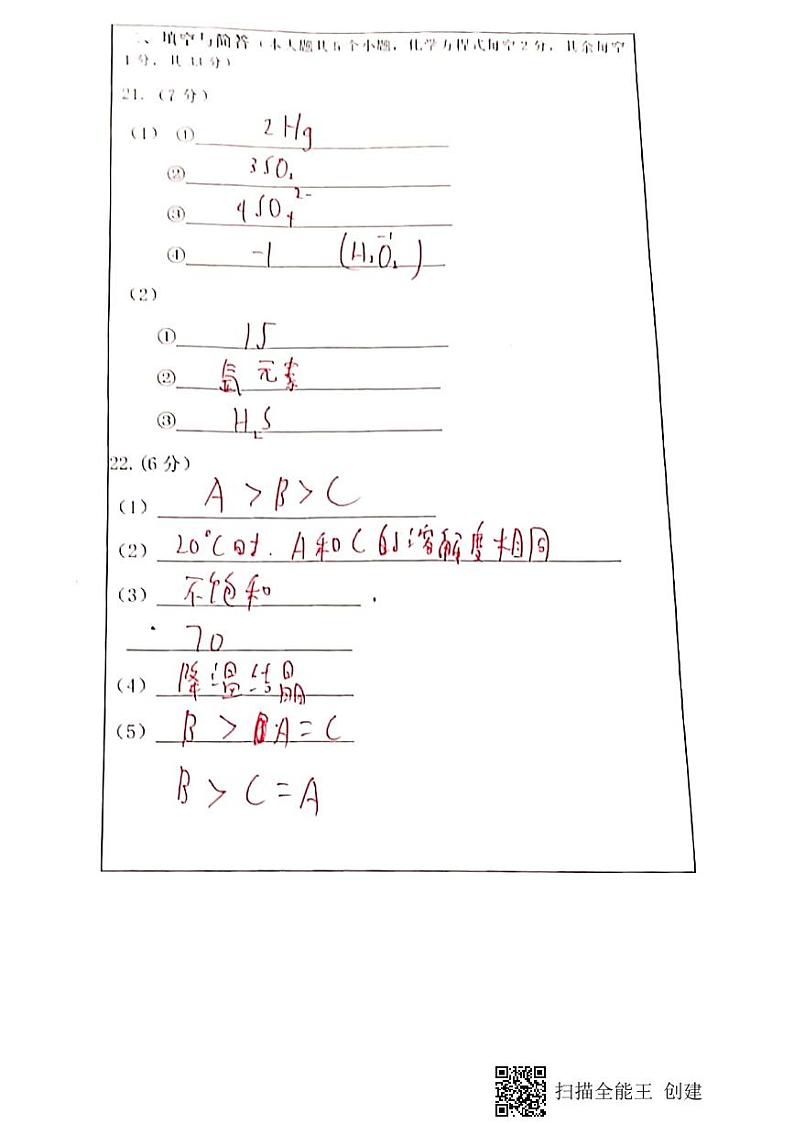 二、填空与简答（本大题共5个小题，化学方程式每空2分，其余每空
1分，共33分）
21.（7分）
（1）① 2Hg
② 3SO₂
③ 4SO₄²⁻
④ -1 （H₂O₂）
（2）
① 15
② 氩元素
③ H₂S
22.（6分）
（1） A > B > C
（2） 20°C时. A和C的溶解度相同
（3） 不饱和
70
（4） 降温结晶
（5） B > A = C
B > C = A
扫描全能王 创建